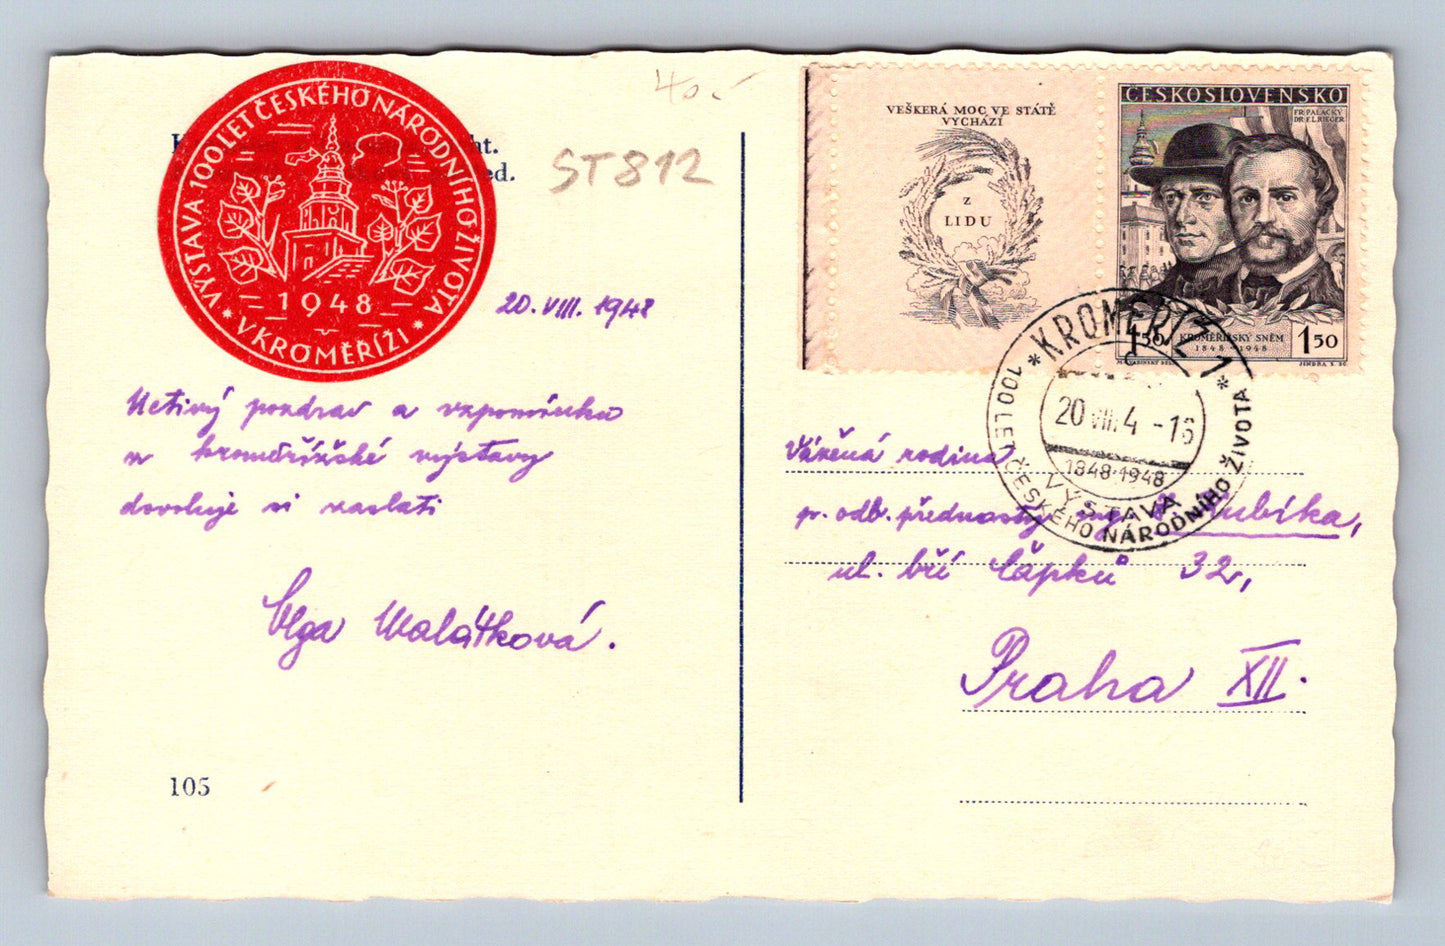 VÝSTAVA 100 LET ČESKÉHO NÁRODNÍHO ŽIVOTA
* V KROMĚŘÍŽI *
1948
ht.
ed.
40.-
ST812
20. VIII. 1948
Uctivý pozdrav a vzpomínku
z kroměřížské výstavy
dovoluje si zaslati
Olga Malátková.
105
VEŠKERÁ MOC VE STÁTĚ
VYCHÁZÍ
Z
LIDU
ČESKOSLOVENSKO
FR. PALACKÝ
DR. F. L. RIEGER
1 50
KROMĚŘÍŽSKÝ SNĚM
1848 - 1948
1 50
JINDRA S. SC.
* KROMĚŘÍŽ 1 *
20 VIII. 4 -16
1848-1948
VÝSTAVA
100 LET ČESKÉHO NÁRODNÍHO ŽIVOTA
Vážená rodina
p. odb. přednosty ing.
ul. bří Čapků 32,
Praha XII.